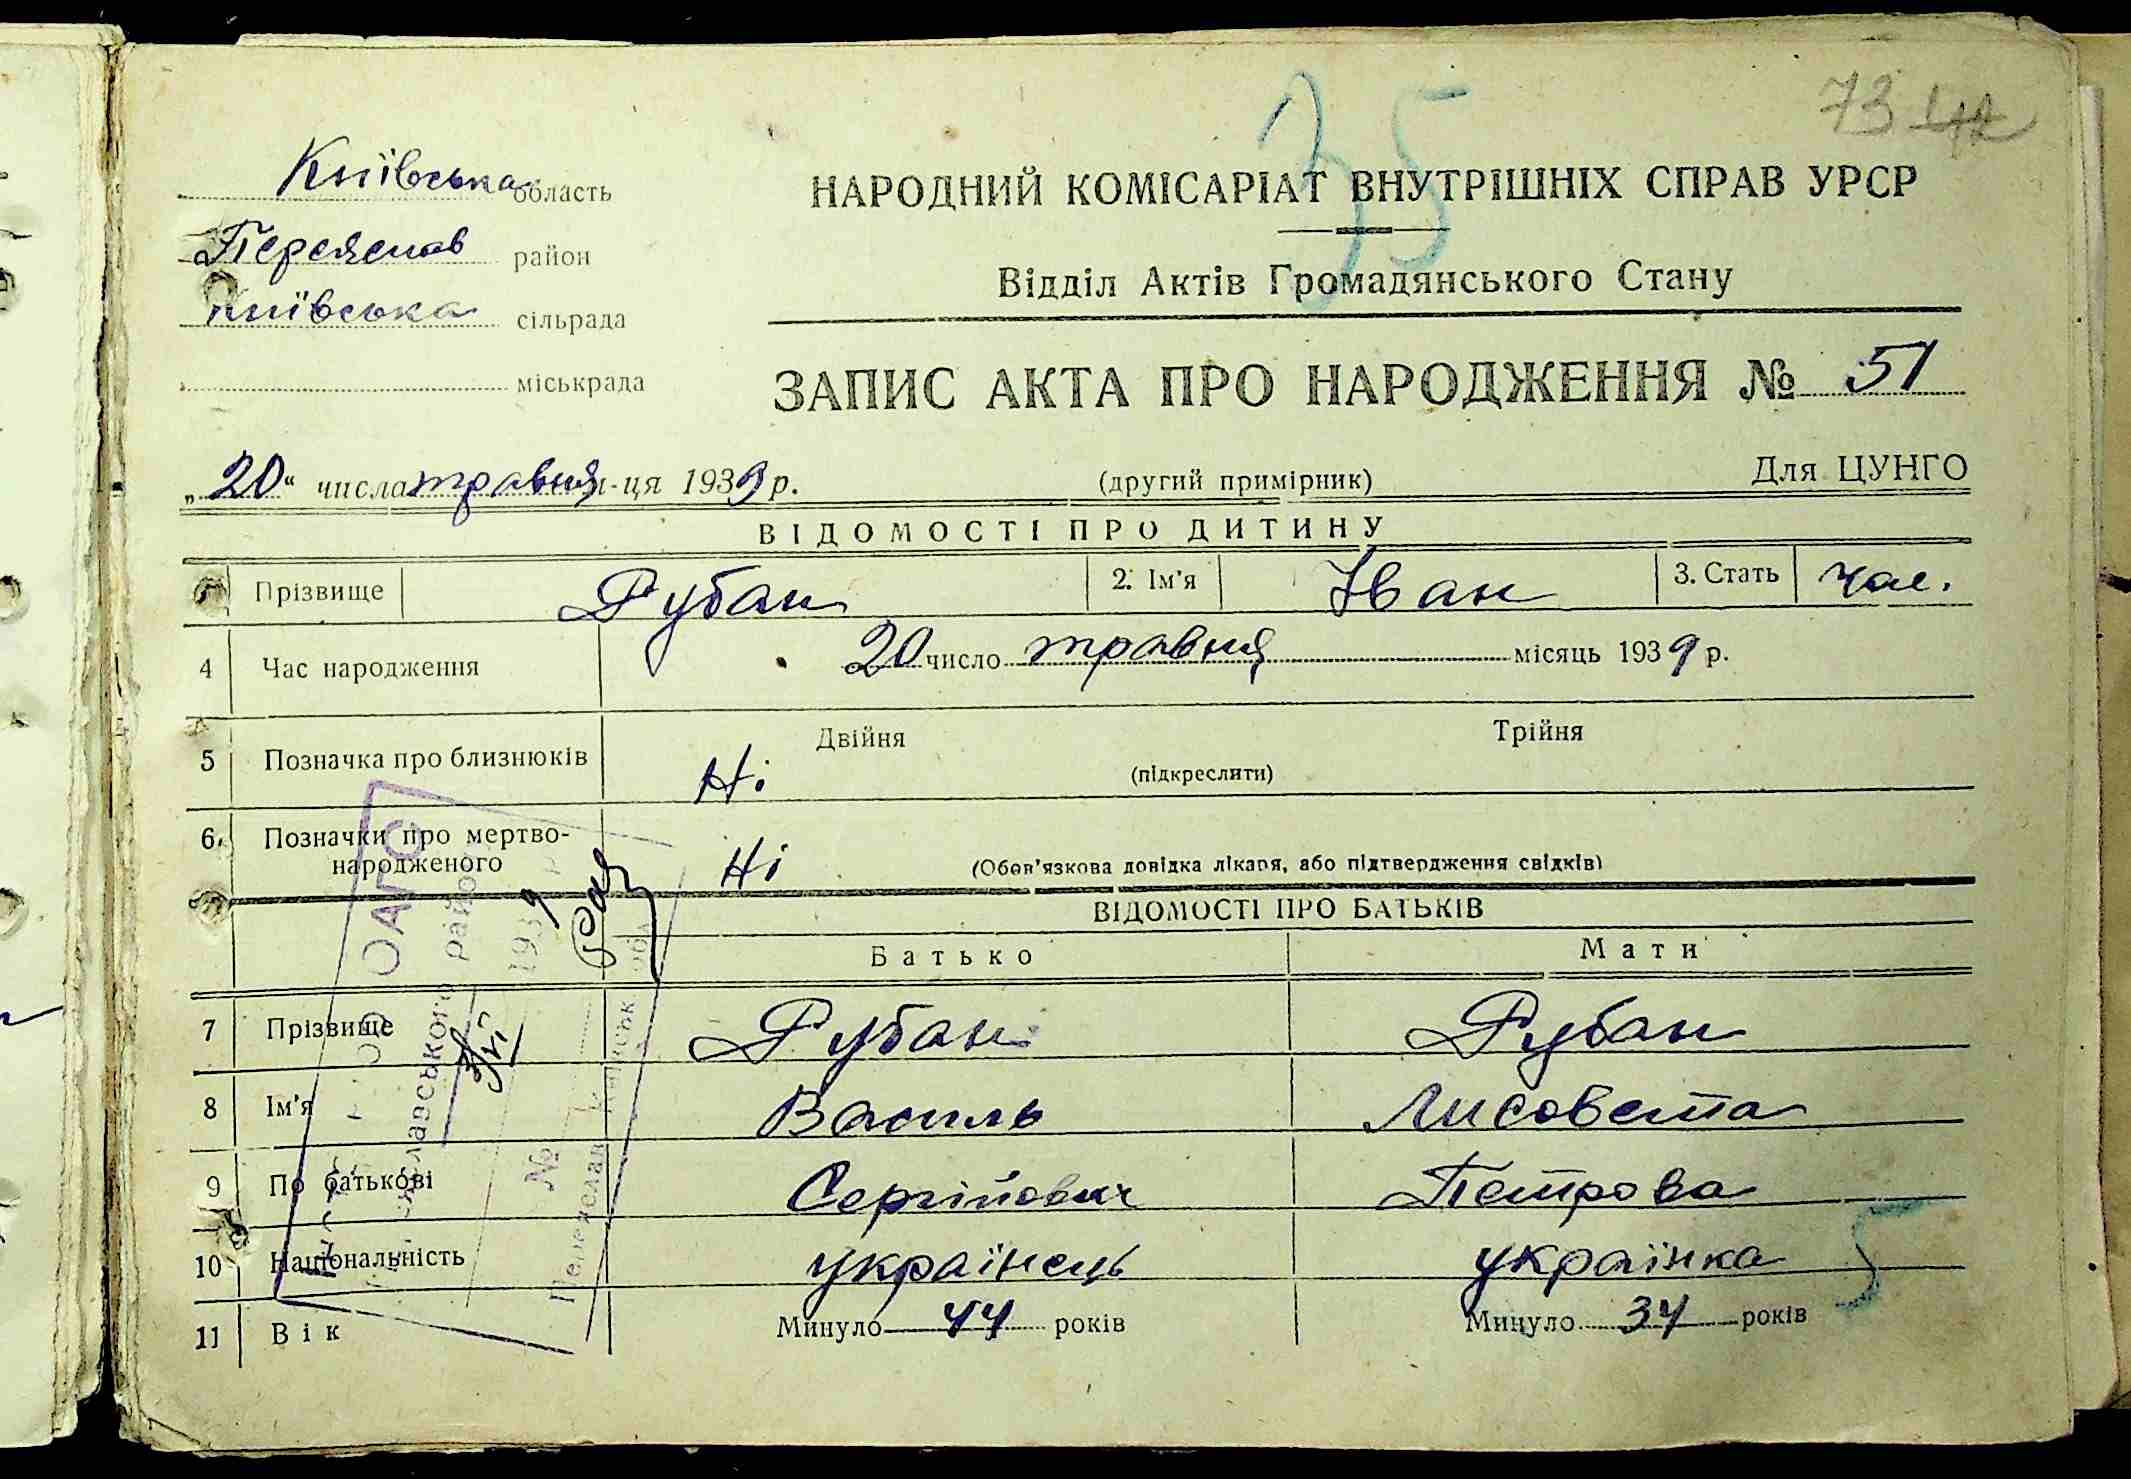 73 42
35
Київська область
НАРОДНИЙ КОМІСАРІАТ ВНУТРІШНІХ СПРАВ УРСР
Переяслав район
Відділ Актів Громадянського Стану
Київська сільрада
міськрада
ЗАПИС АКТА ПРО НАРОДЖЕННЯ № 51
„20“ числа травня м-ця 1939 р.
(другий примірник)
Для ЦУНГО
ВІДОМОСТІ ПРО ДИТИНУ
Прізвище Рубан 2. Ім'я Іван 3. Стать чол.
4 Час народження 20 число травня місяць 1939 р.
5 Позначка про близнюків Ні Двійня Трійня
(підкреслити)
6. Позначки про мертво-
народженого Ні (Обов'язкова довідка лікаря, або підтвердження свідків)
ВІДОМОСТІ ПРО БАТЬКІВ
Батько Мати
7 Прізвище Рубан Рубан
8 Ім'я Василь Лисовета
9 По батькові Сергійович Петрова
10 Національність українець українка
11 Вік Минуло 44 років Минуло 34 років
5
ОАГС
району
1939
№